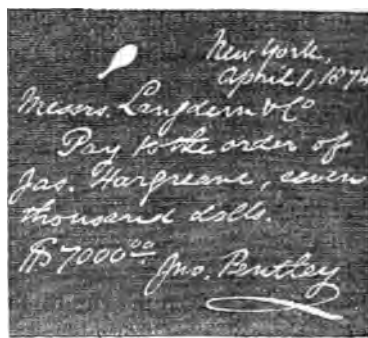 New York,
April 1, 1874
Messrs. Langdern & Co
Pay to the order of
Jas. Hargreane, seven
thousand dolls.
$7000⁰⁰ Jno. Pentley